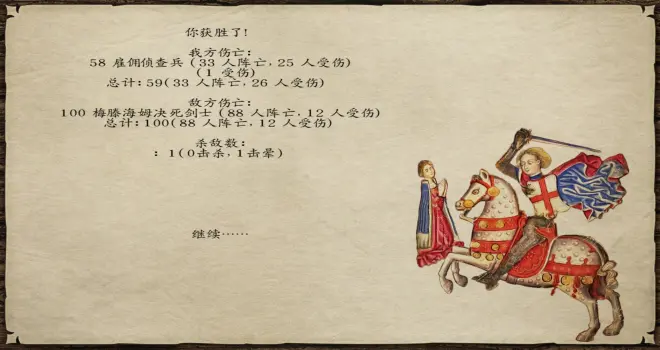 你获胜了!
我方伤亡:
58 雇佣侦查兵 (33 人阵亡, 25 人受伤)
(1 受伤)
总计: 59(33 人阵亡, 26 人受伤)
敌方伤亡:
100 梅滕海姆决死剑士 (88 人阵亡, 12 人受伤)
总计: 100(88 人阵亡, 12 人受伤)
杀敌数:
: 1(0击杀, 1击晕)
继续……